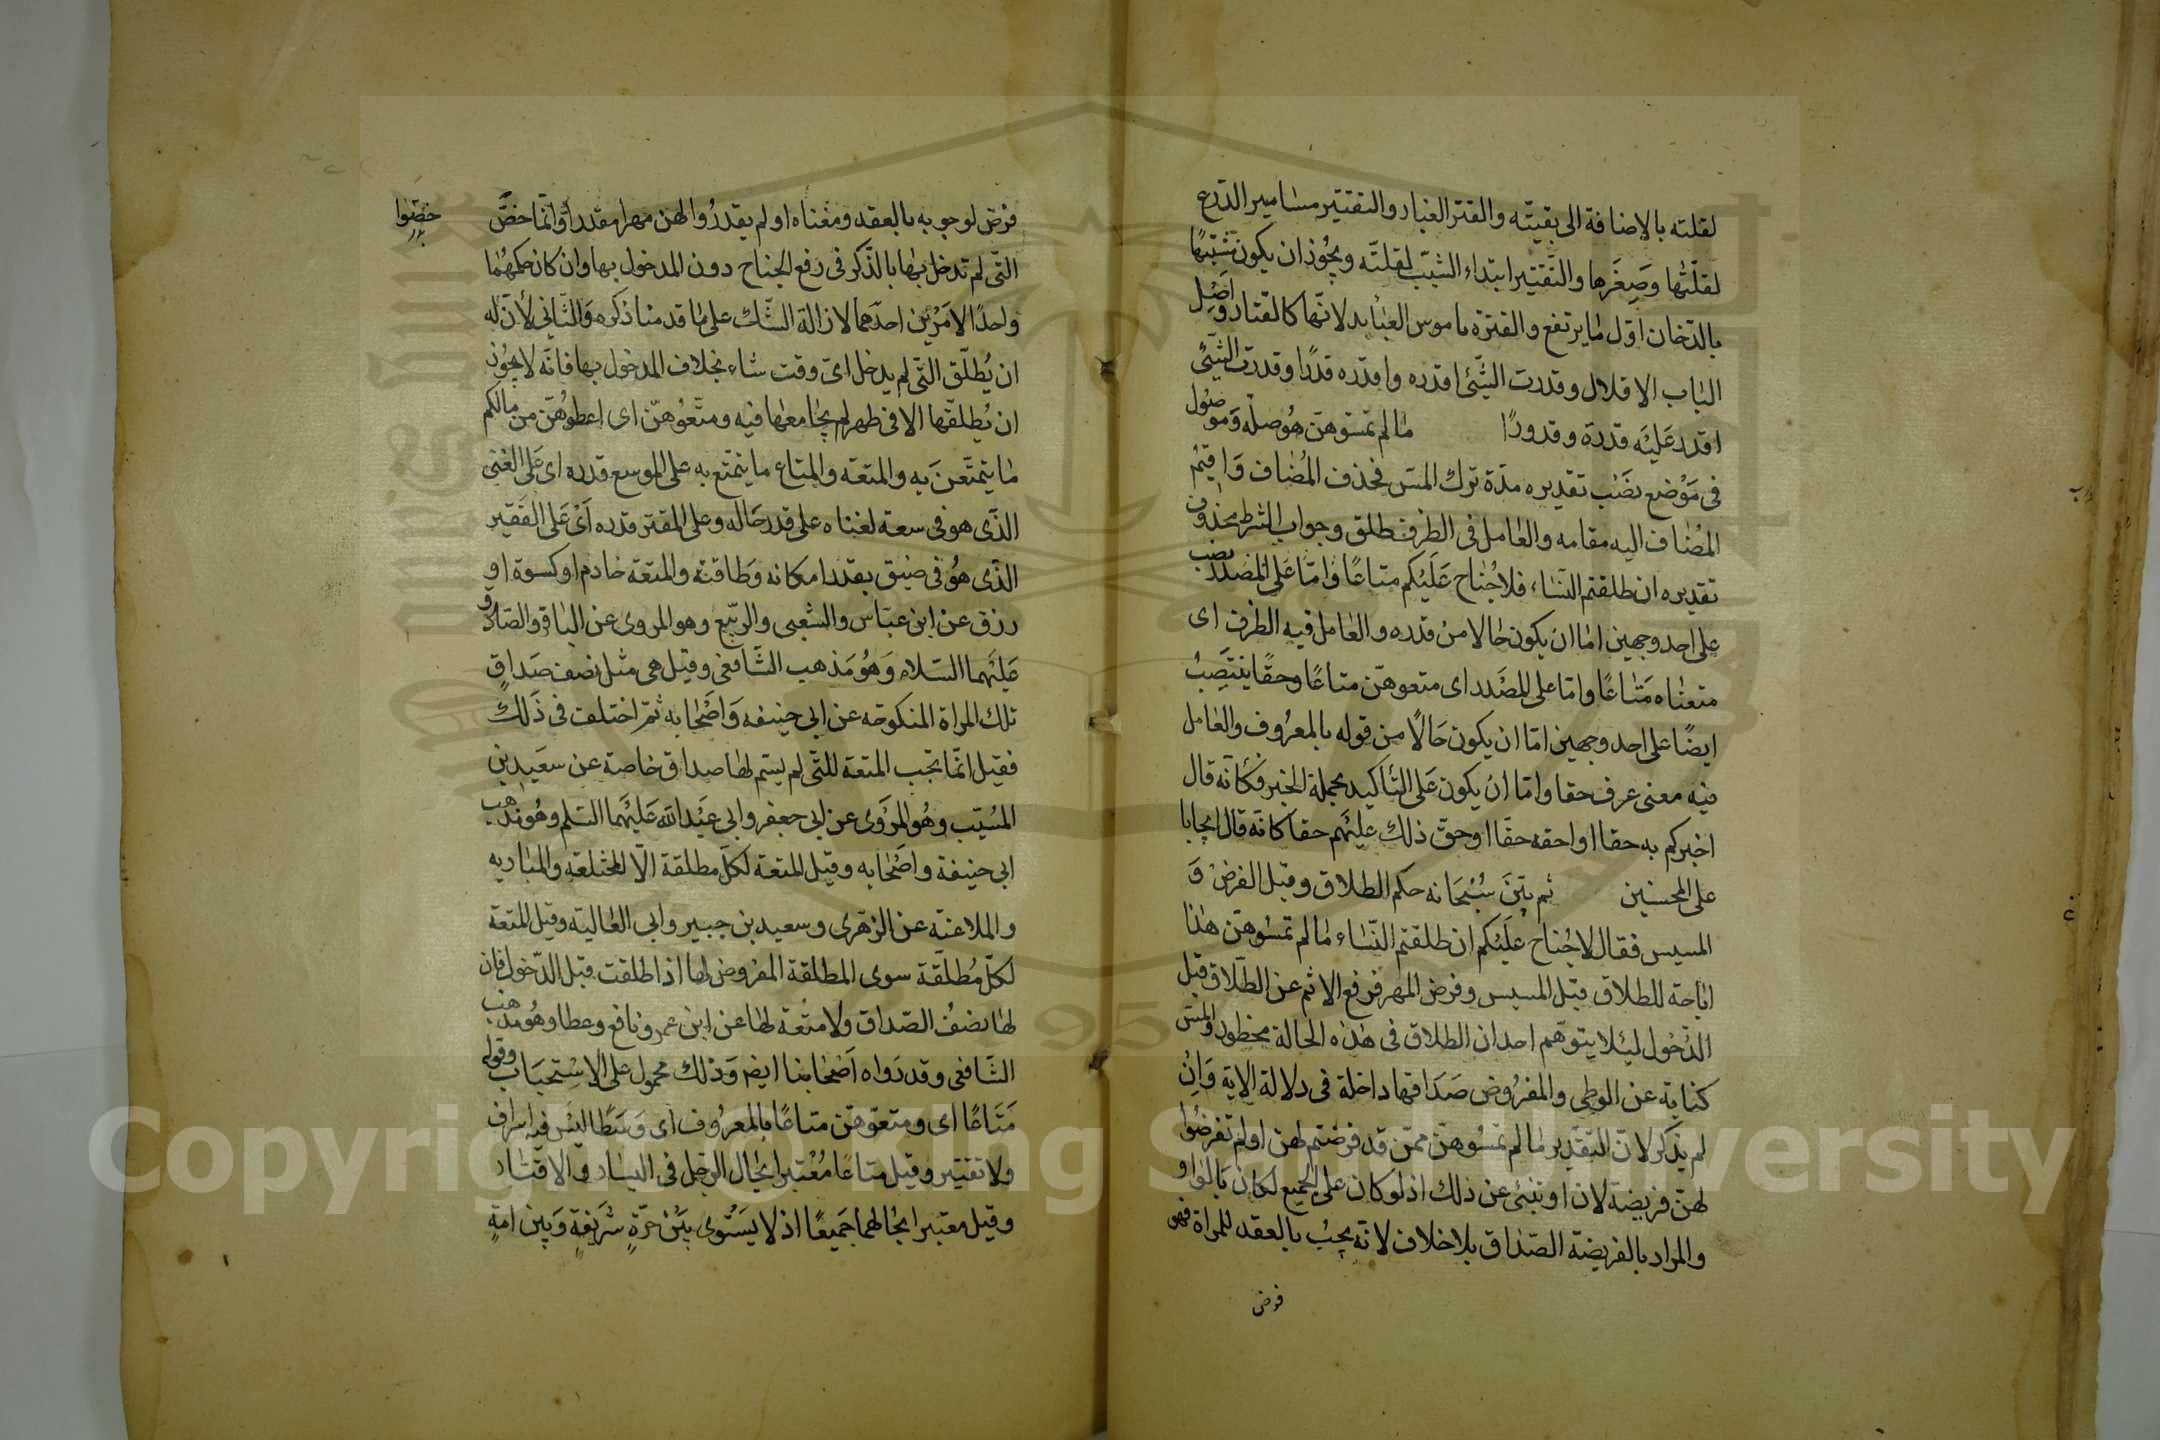 لقلته بالاضافة الى بقيتّه والقتر الغبار والتقتير مسامير الدّرع
لقلّتها وصِغَرها والتَّقتير ابتداء الشيّب لقلتّه ويجُوز ان يكون شبّهًا
بالدّخان اوّل مٰا يرتفع والقترة ناموس الصٰايد لانّها كالقتار وَاصْل
البٰاب الاقلال وقدرت الشّئ اقدره واقدّره قدرًا وقدرت الشئ
اقدر عَليْه قدرة وقدورًا مٰا لم تمسّوهنّ هُو صلة وَموصُول
فى مَوْضع نصَبْ تقديره مدّة ترك المسّ فحذف المُضاف وَاقيمْ
المُضٰاف اليه مقامه والعٰامل فى الظرف طلق وجواب الشرط محذوف
تقديره ان طلقتم النّسٰاء فلاجُنٰاح عَلَيْكم متاعًا وٰامّا عَلى المصْدر نصب
على احد وجهين امٰا ان يكون حٰالا من قدره والعٰامل فيه الظرف اى
متعنٰاه مَتٰاعًا وامّا على المصْدر اى متعوهنّ متاعًا وحقًا ينتَصِبُ
ايضًا على احد وجهين امّا ان يكون حَالًا من قوله بالمعرُوف والعٰامل
فيه معنى عرف حقا وامّا انْ يكون عَلى التأكيد بجملة الخبر فكَأنّه قال
اخبركم به حقا او احقه حقّا او حقّ ذلك عليْهم حقا كانّه قال ايجابا
على المحسنين ثم بيّنَ سُبْحَانه حكم الطلاق وقبل الفرضْ وَ
المسيس فقال لاجُناح علَيْكم ان طلقتم النّسٰاء مٰا لم تمسّوهنّ هذٰا
ابٰاحة للطلاق قبْل المسيس وفرض المهر فرفع الاثم عن الطّلاق قبْل
الدّخول ليئلا يتوّهم احد ان الطلاق فى هٰذه الحالة محظور والمسّ
كنايه عن الوطى والمفرُوض صَدَاقها داخلة فى دلالة الاية وَانْ
لم يذكر لانّ التّقدير مٰا لم تمسُّوهنّ ممّن قد فرضتم لهنّ او لم تفرضُوا
لهنّ فريضة لان او تنبئ عن ذلك اذ لو كان على الجميع لكانْ بالوٰاو
والمراد بالفريضة الصّدٰاق بلا خلاف لانّه يجبُ بالعقد للمراة فهو
فرض
فرض لوجوبه بالعقد ومعْناه او لم يقدرُوا لهن مهرا مقدرا وانّما خصَّ
خصّوا
التّى لم تدخل بهٰا بالذّكر فى رفع الجناح دون المدخول بها وان كان حكمهُمٰا
واحدًا لامَرْين احدّهما لازالة الشّك على مٰا قدمنا ذكره وَالثّاني لأنّ له
ان يُطلّق التّى لم يدخل اىّ وقت شاء بخلاف المدخول بها فانّه لايجُوز
ان يُطلقّها الا فى طهر لم يجامعهٰا فيه ومتّعُوهنّ اى اعطوُهنّ من مالكم
مٰا يتمتّعنَ به والمتعة والمتاع ما يتمتّع به على الموسع قدره اى عَلى الغنى
الذّى هو فى سعة لغناه على قدر حَاله وعلى المقتر قدره اَىْ عَلى الفقير
الذّى هُو فى ضيق بقدر امكانه وَطاقته والمتعة خادم او كسوة او
رزق عن ابن عبّاس والشّعبى والرّبيع وهو المروى عن البٰاقر والصّادق
عَليْهما السّلام وَهُو مَذهب الشّافعى وقيل هى مثل نصف صَداقٍ
تلك المراة المنكوحه عن ابي حنيفه وَاَصْحٰابه ثمّ اختلف فى ذَلك
فقيل انّما تجب المتعة للتّى لم يسّم لهٰا صداق خاصة عن سعَيد بن
المُسيّب وهُو المرَوى عن ابي جعفر وابي عبْدالله عَليْهما السّلم وهُو مذهب
ابي حنيفة واصْحٰابه وقيل المتعة لكلّ مطلقة الّا المختلعه والمبٰاريه
والملاعنة عن الزّهرى وسعيد بن جبير وابي العٰالية وقيل المتعة
لكلّ مُطلّقة سوى المطلقة المفروض لها اذا طلقت قبْل الدّخول فان
لهٰا نصْفُ الصّداق ولا متعْة لهٰا عن ابن عمر ونافع وعطا وهُو مذهب
الشّافعى وقد رَواه اَصْحٰابنا ايض وَذلك محمول على الاسْتحبَاب وقوله
مَتَاعًا اى ومتعّوهنّ متاعًا بالمعرُوف اى وَسَطًا ليْس فيه اسراف
ولا تقتير وقيل متاعًا مُعْتبرا بحٰال الرّجل فى اليسٰار وَالاقتٰار
وقيل معتبرا بحٰالهما جَميعًا اذ لايسْتَوى بيَنْ حرّةٍ شَريفةٍ وَبين امةٍ